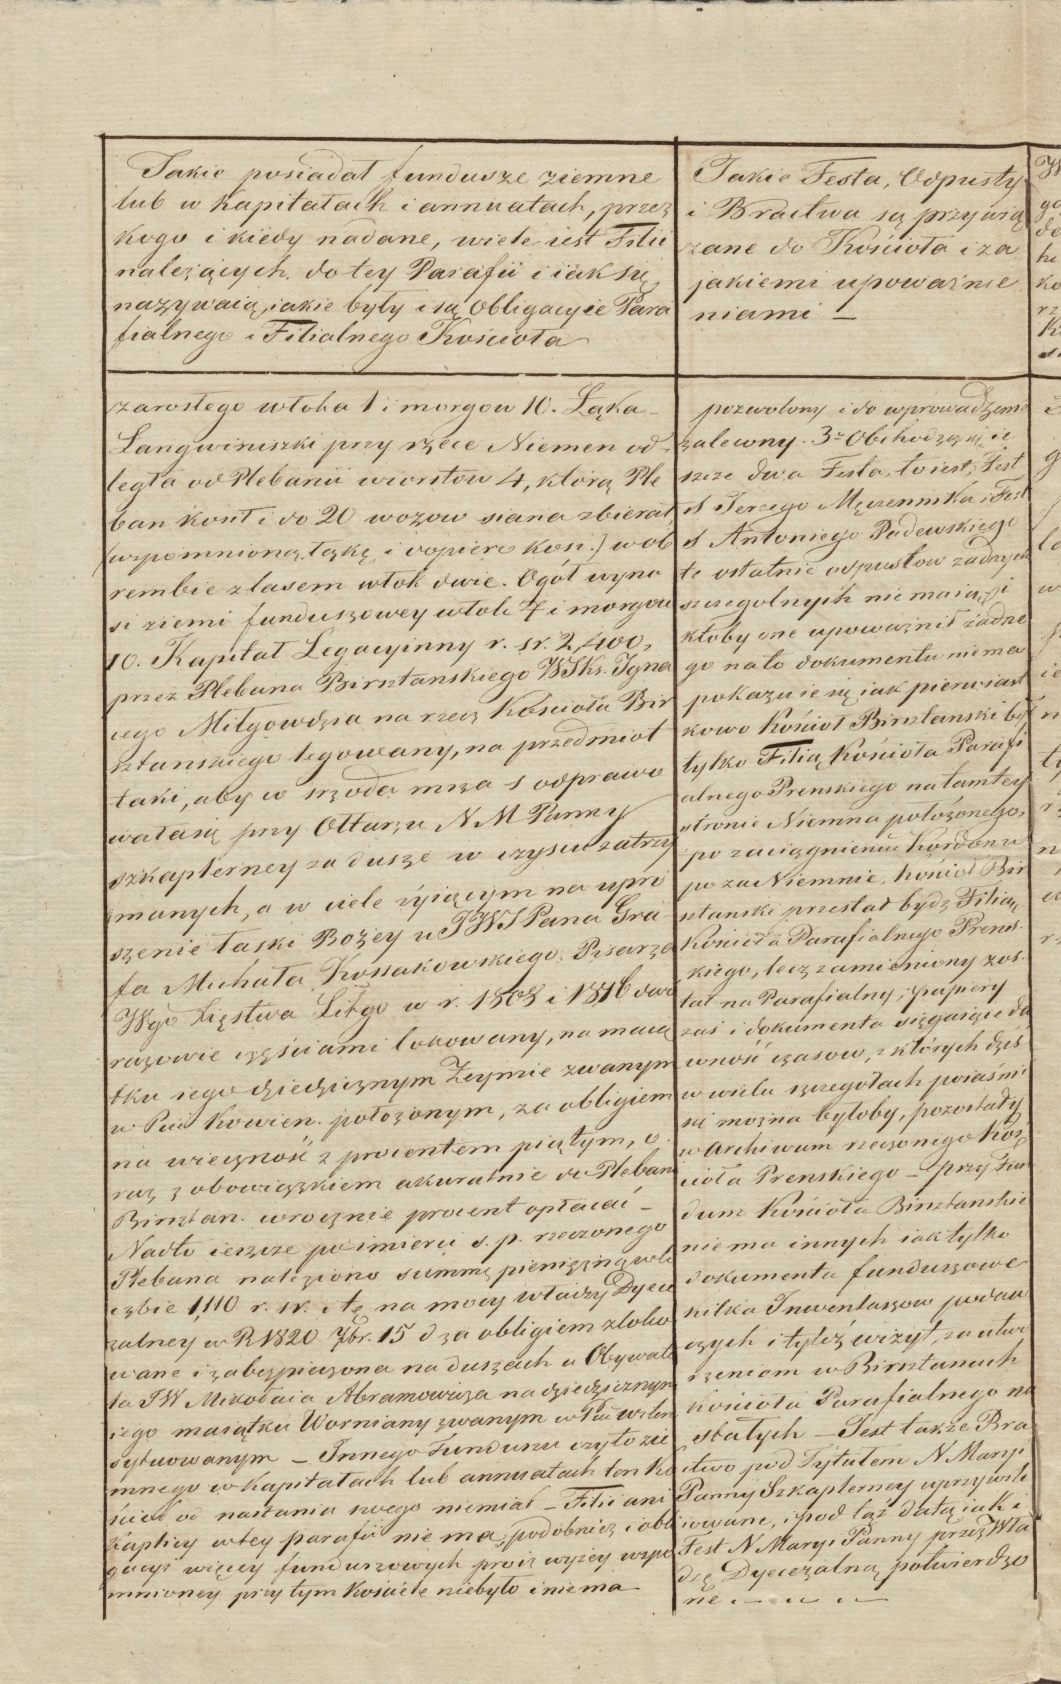 Jakie posiadał fundusze ziemne
lub w kapitałach i annuatach, przez
kogo i kiedy nadane, wiele iest Filii
należących do tey Parafii i iak się
nazywaią, iakie były i są obligacyie Para
fialnego i Filialnego Kościoła
zarosłego włoka 1 i morgow 10. Łąka
Langwiniszki przy rzece Niemen od-
legła od Plebanii wiorstow 4, którą Ple
ban kosił i do 20 wozow siana zbierał,
(wspomnioną łąkę i dopiero kosi.) w ob
rembie z lasem włok dwie. Ogół wyno
si ziemi funduszowey włok 7 i morgow
10. Kapitał Legacyinny r. sr. 2,400,
przez Plebana Birsztanskiego WJKs. Igna
cego Miłgowdza na rzecz Kościoła Bir
sztanskiego legowany, na przedmiot
taki, aby w srzodę msza s odprawo
wała się przy Ołtarzu N M Panny
szkaplerney za dusze w czyscu zatrzy
manych, a w ciele żyiącym na upro
szenie łaski Bożey u JWJ Pana Gra
fa Michała Kossakowskiego, Pisarza
Wgo Xięstwa Litgo w r. 1808 i 1816 dwu
razowie częściami lokowany, na maią
tku iego dziedzicznym Żeymie zwanym
w Pcie Kowien. położonym, za obligiem
na wieczność z procentem piątym, o
raz z obowiązkiem akuratnie do Pleban
Birsztan. wrocznie procent opłacać –
Nadto ieszcze po smierci s. p. rzeczonego
Plebana nalezione summę pieniężną w li
czbie 1,110 r. sr. tę na mocy władzy Dyece
zalney w R 1820 7br. 15 d za obligiem zloko
wane i zabezpieczona na duszach u Obywate
la JW Mikołaia Abramowicza na dziedzicznym
iego maiątku Worniany zwanym w Pcie wilen
sytuowanym – Innego Funduszu czyto zie
mnego w kapitałach lub annuatach ten Ko
ściół od nastania swego niemiał – Filii ani
Kaplicy w tey parafii nie ma, podobnież i obli
gacyi więcey funduszowych procz wyżey wspo
mnioney przy tym Kościele niebyło i niema
Jakie Festa, Odpusty
i Bractwa są przywią
zane do Kościoła i za
jakiemi upoważnie
niami –
pozwolony i do wprowadzenia
zalewny. 3o Obchodzą się ie
szcze dwa Festa, to iest, Fest
S Jerzego Męczennika i Fest
S Antoniego Padewskiego
te ostatnie odpustow żadnych
szczegolnych nie maią, i
ktoby one upoważnił żadne
go na to dokumentu niema
pokazuie się iak pierwiast
kowo Kościoł Birsztanski był
tylko Filią Kościoła Parafi
alnego Prenskiego na tamtey
stronie Niemna położonego,
po zaciągnieniu Kordonu
po za Niemnie, Kościoł Bir
sztanski przestał bydź Filią
Kościoła Parafialnego Prens-
kiego, lecz zamieniony zos-
tał na Parafialny; papiery
zaś i dokumenta sięgaiące da
wność czasow, z których dziś
w wielu szczegołach poiaśni
ć można byłoby, pozostały
w Archiwum rzeczonego Koś
cioła Prenskiego – przy Fun
dum Kościoła Birsztanskie
niema innych iak tylko
dokumenta funduszowe
kilka Inwentarzow podaw
czych i tyleż wizyt, za utwo
rzeniem w Birsztanach
Kościoła Parafialnego na
stałych – Jest także Bra
ctwo pod Tytułem N Maryi
Panny Szkaplerney uprzywile
iowane, i pod tąż datą iak i
Fest N Maryi Panny przez Wła
dzę Dyecezalną potwierdzo
ne